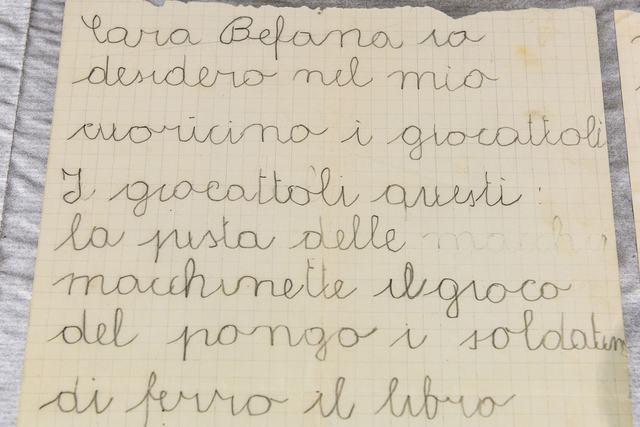 Cara Befana io
desidero nel mio
cuoricino i giocattoli
I giocattoli questi:
la pista delle
macchinette il gioco
del pongo i soldatini
di ferro il libro